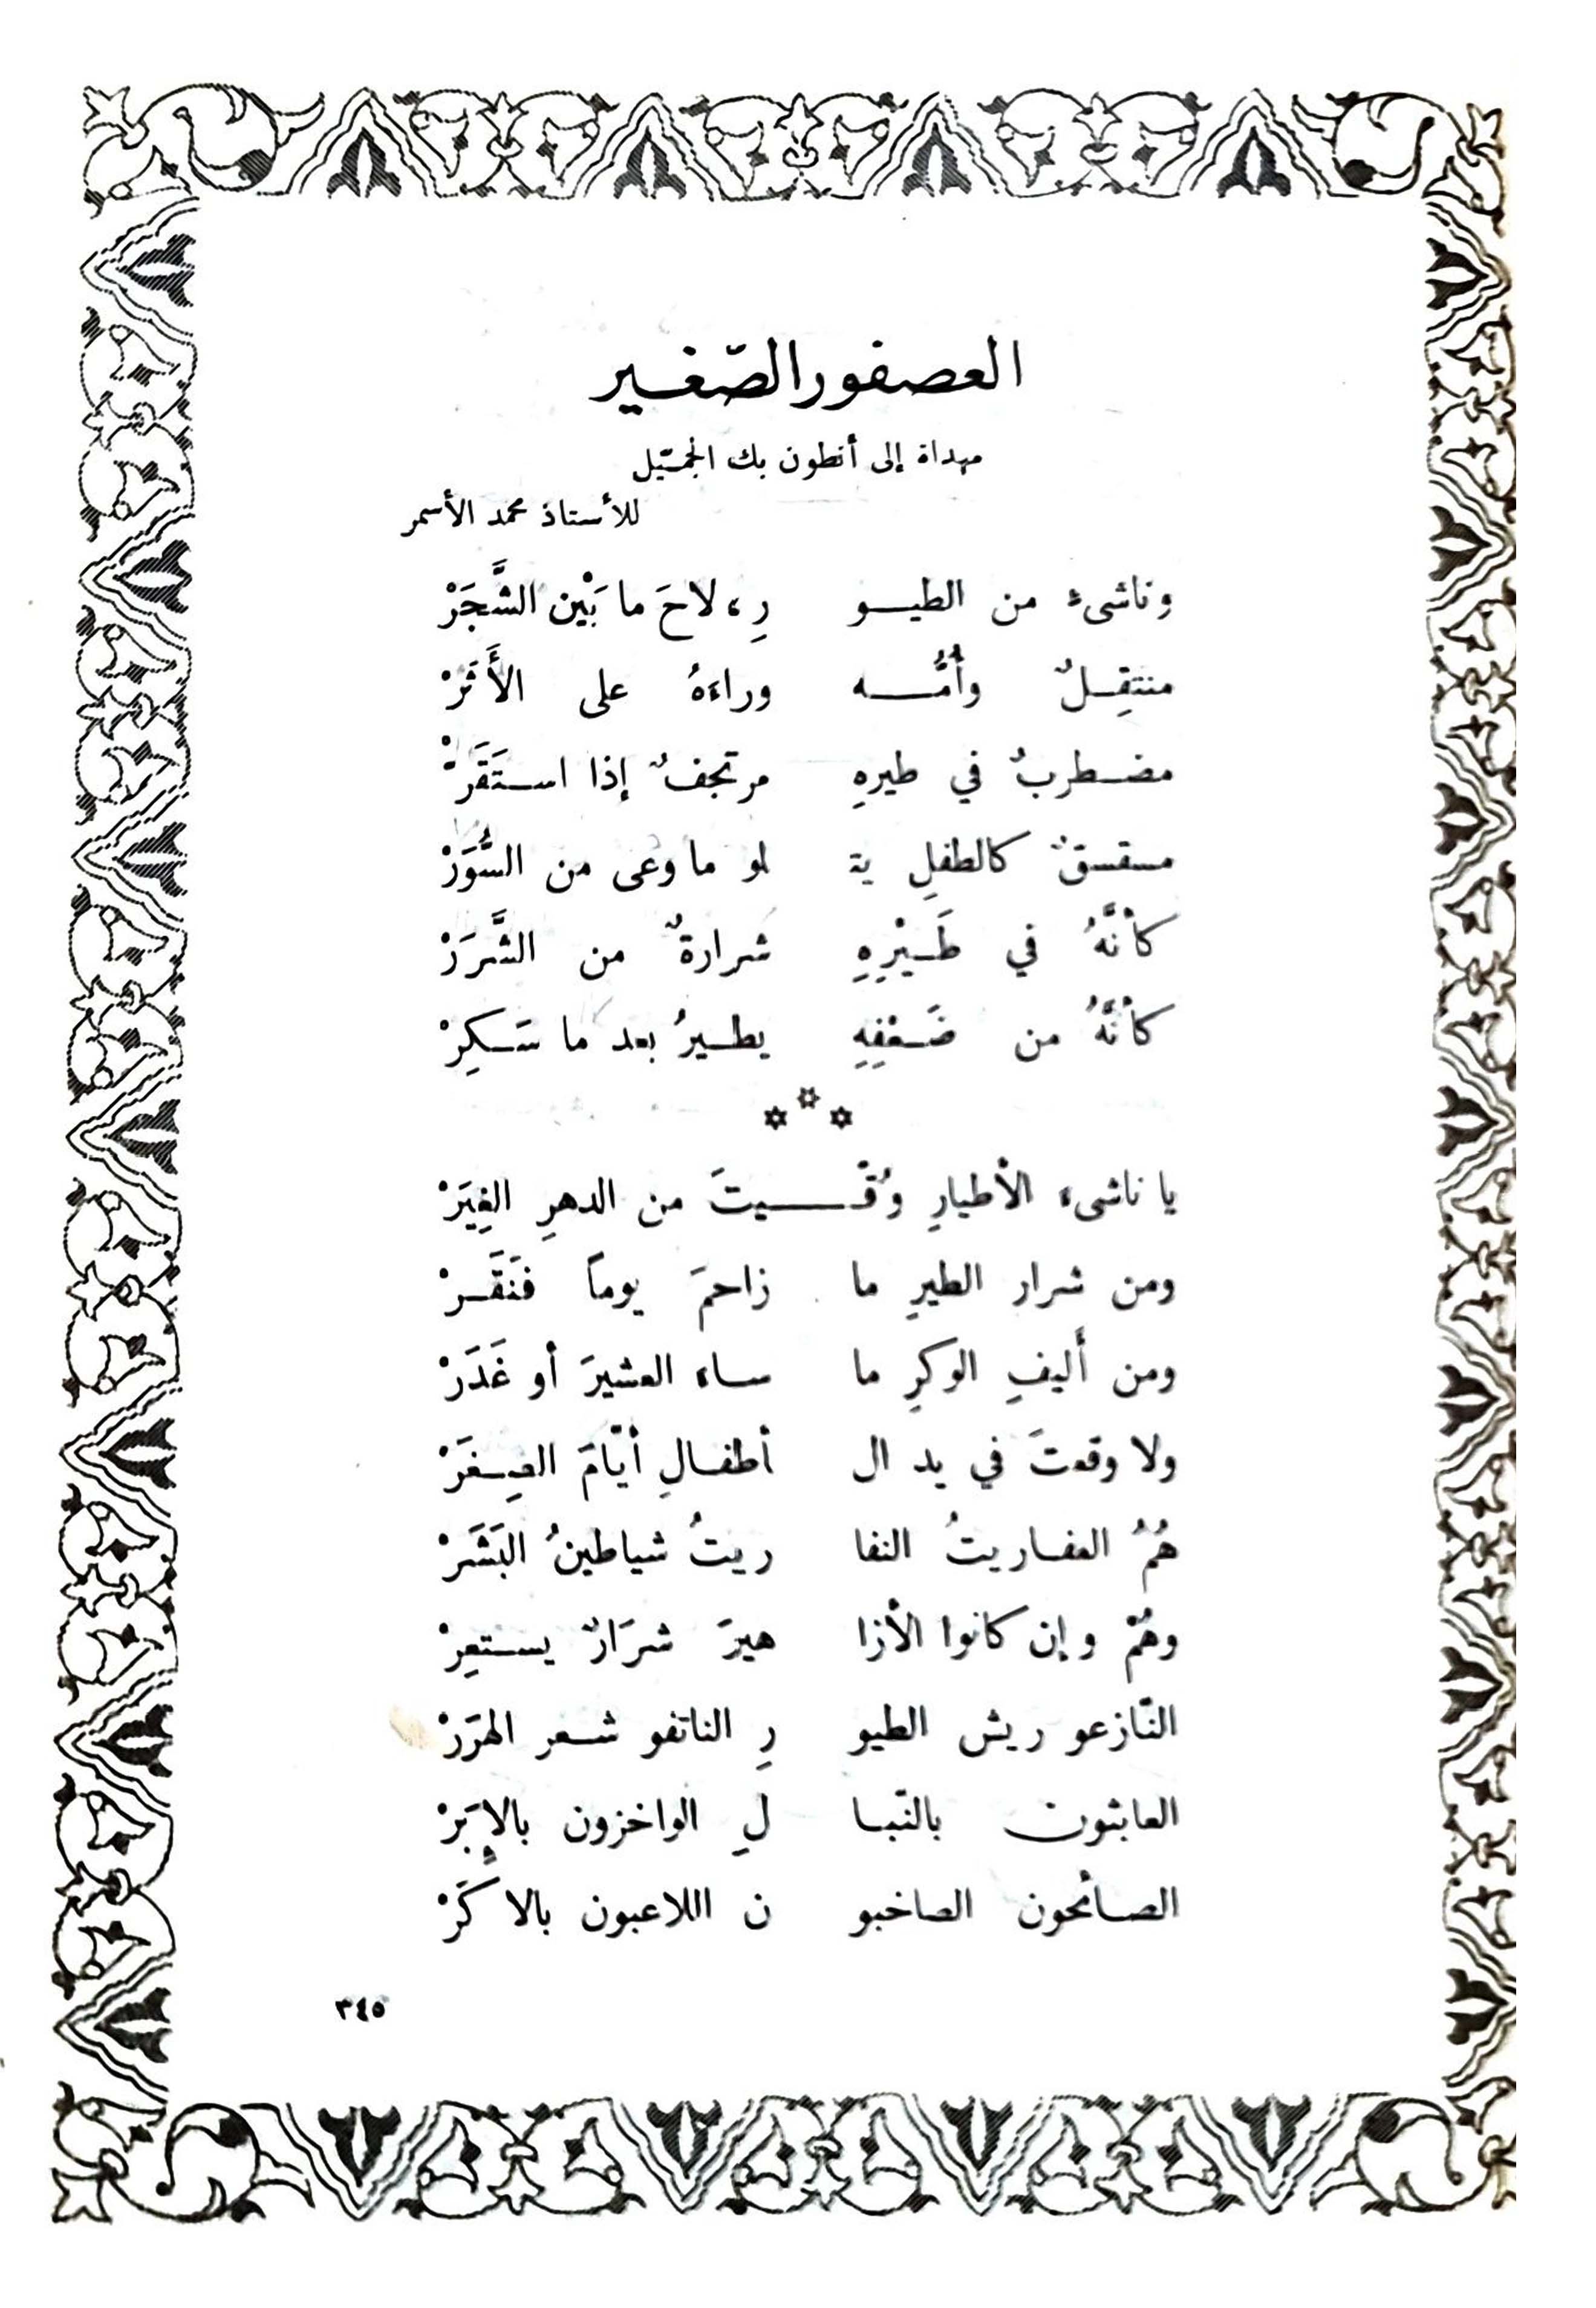 العصفور الصّغير
مهداة إلى أنطون بك الجميّل
للأستاذ محمد الأسمر
وناشىء من الطيـــو رِ، لاحَ ما بَيْن الشَّجَرْ
منتقِـلٌ وأُمُّـــه وراءَهُ على الأَثَرْ
مضـطربٌ في طيرهِ مرتجفٌ إذا استَقَرّْ
مسقسقٌ كالطفلِ يتـ لو ما وعى من السُّوَرْ
كأنَّهُ في طَـيْرِهِ شرارةٌ من الشَّرَرْ
كأنَّهُ من ضَـعْفِهِ يطـيرُ بعد ما سَـكِرْ
***
يا ناشىء الأطيارِ وُقّـــيتَ من الدهرِ الغِيَرْ
ومن شرار الطيرِ ما زاحمَ يوماً فنَقَـرْ
ومن أَليفِ الوكرِ ما ساء العشيرَ أو غَدَرْ
ولا وقعتَ في يد ال أطفـالِ أيّامَ الصِـغَرْ
هُمُ العفـاريتُ النفا ريتُ شياطينُ البَشَرْ
وهُمْ وإن كانوا الأزا هيرَ شرَارٌ يستعِرْ
النّازعو ريش الطيو رِ الناتفو شـعر الهرَرْ
العابثون بالنّبـا لِ الواخزون بالإبَرْ
الصـائحون الصاخبو ن اللاعبون بالاكَرْ
٣٤٥